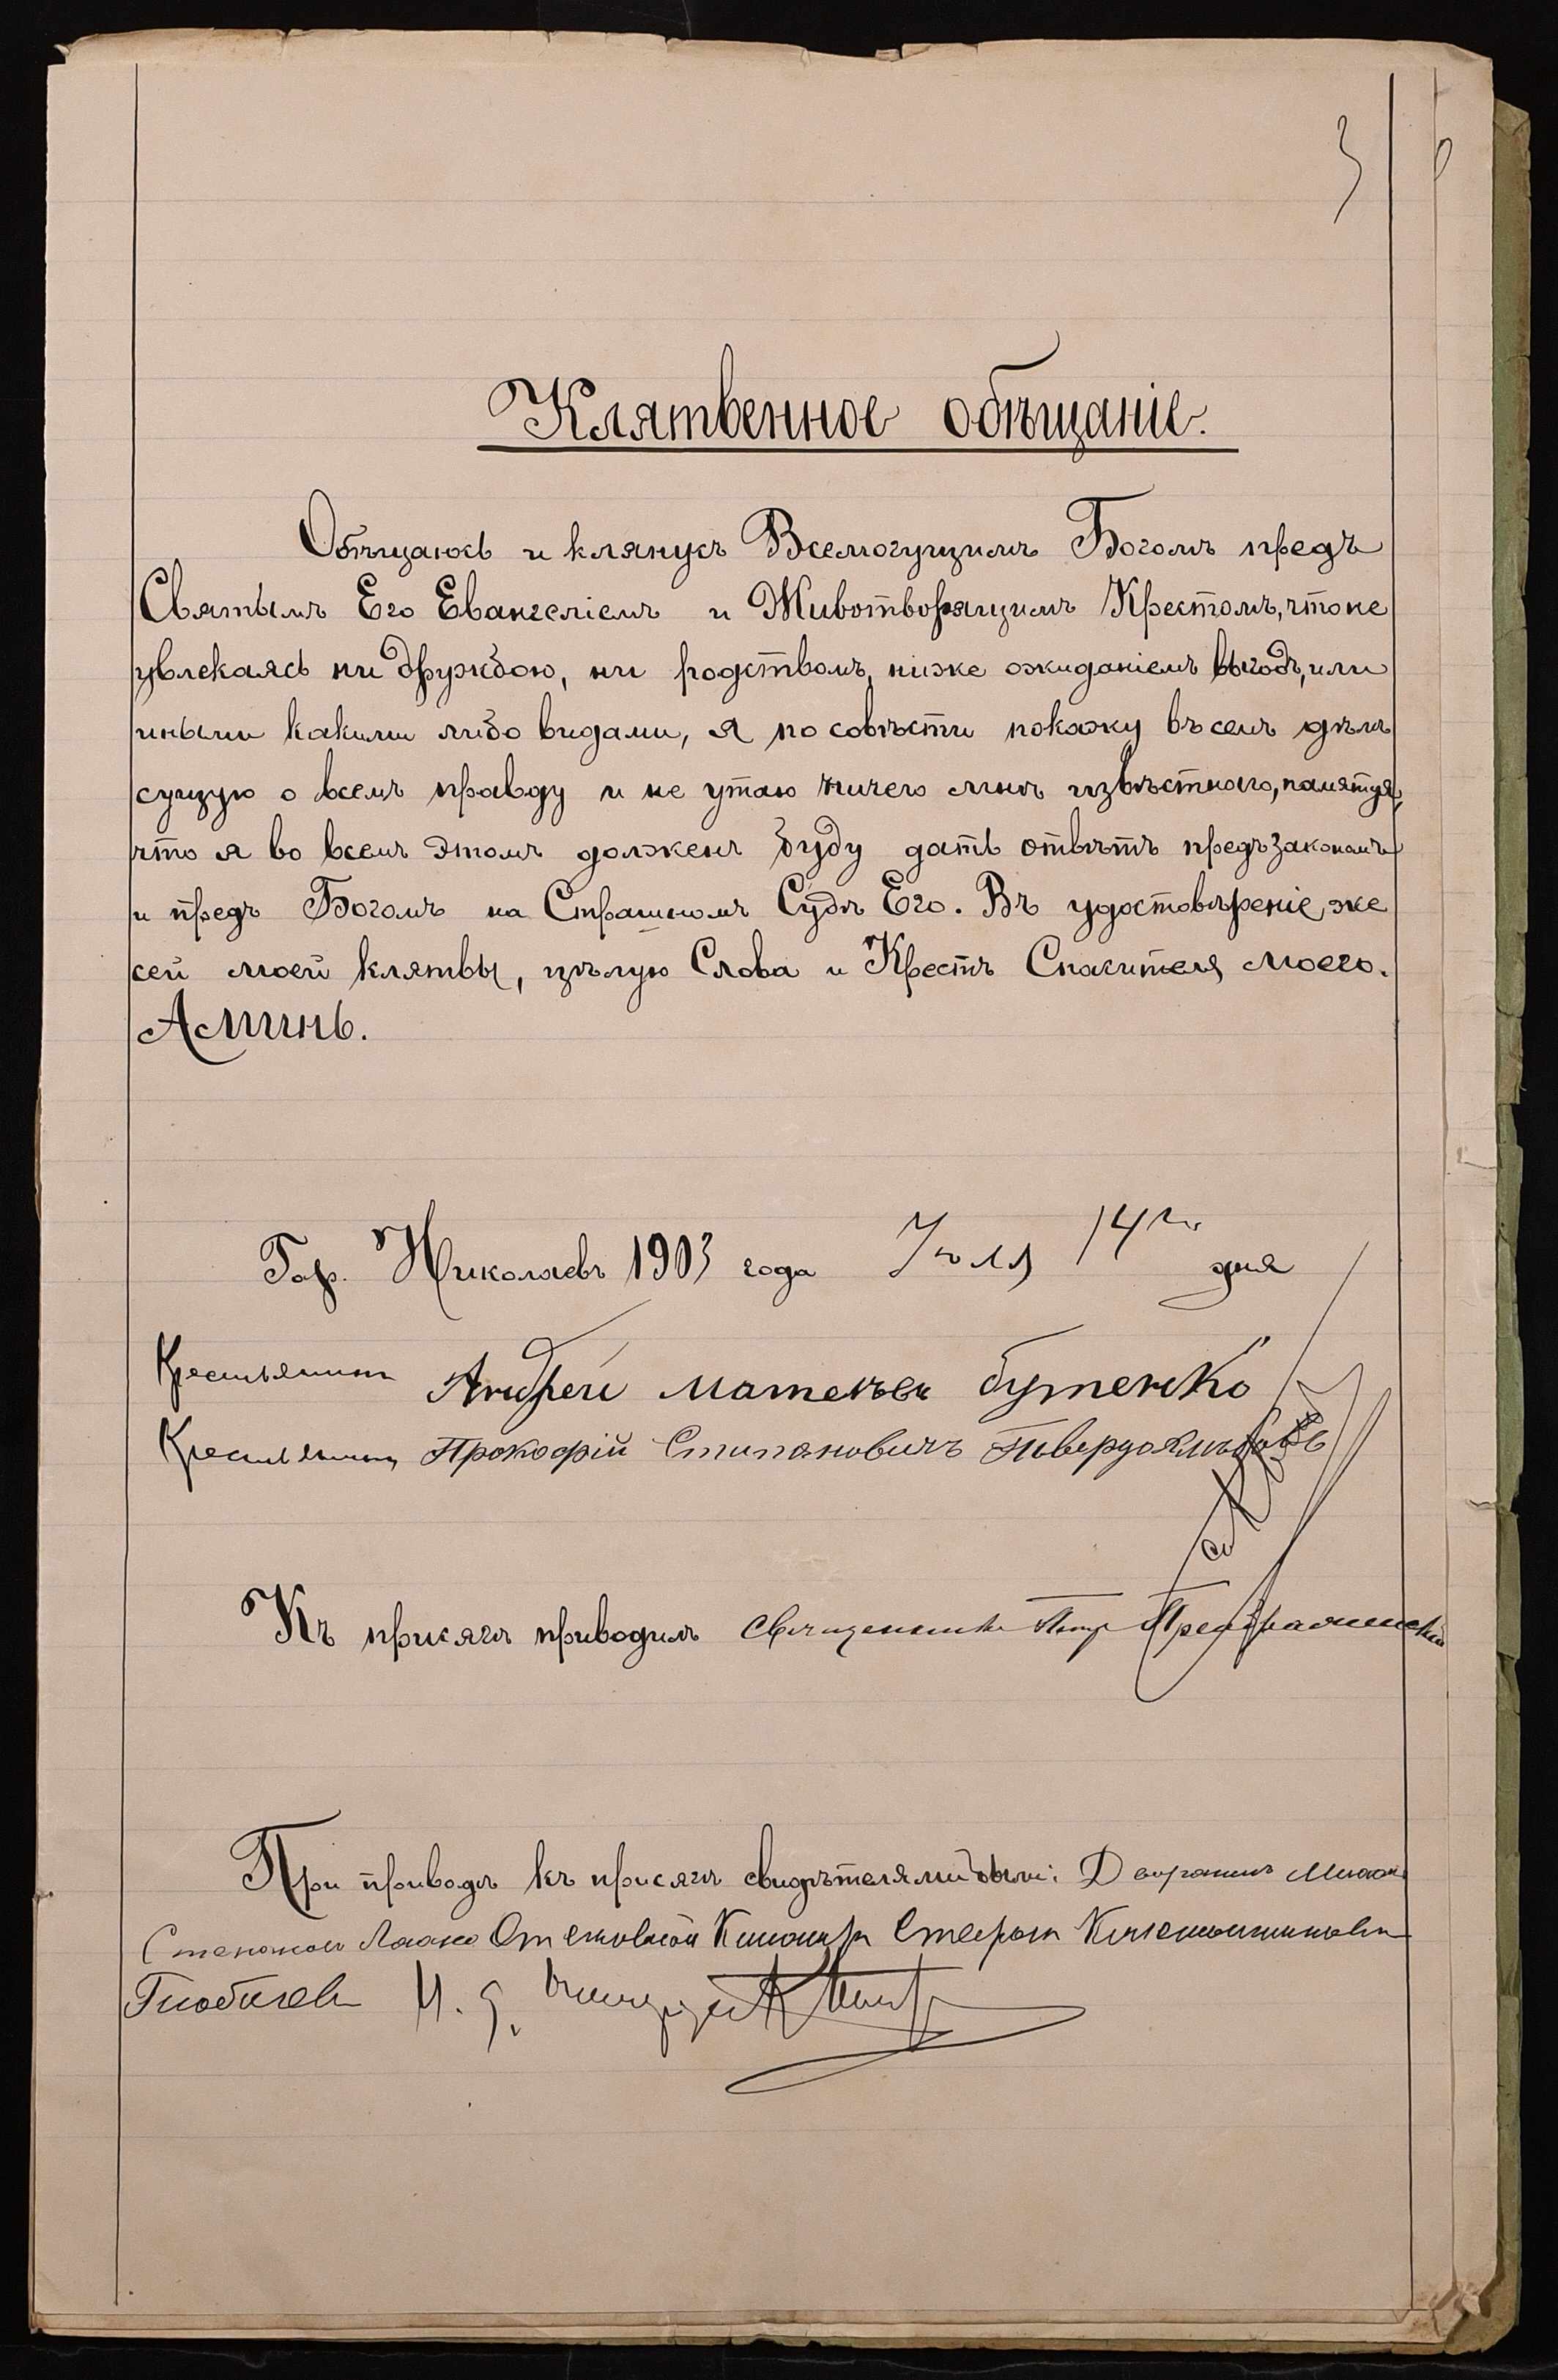 3
Клятвенное обѣщаніе.
Обѣщаюсь и клянусь Всемогущимъ Богомъ предъ
Святымъ Его Евангеліемъ и Животворящимъ Крестомъ, что не
увлекаясь ни дружбою, ни родствомъ, ниже ожиданіемъ выгодъ, или
иными какими либо видами, я по совѣсти покажу въ семъ дѣлѣ
сущую о всемъ правду и не утаю ничего мнѣ извѣстнаго, памятуя,
что я во всемъ этомъ долженъ буду дать отвѣтъ предъ закономъ
и предъ Богомъ на Страшномъ Судѣ Его. Въ удостовѣреніе же
сей моей клятвы, цѣлую Слова и Крестъ Спасителя моего.
Аминь.
Гор. Николаевъ 1903 года Іюля 14го дня
Крестьянинъ Андрей Матвѣевъ бутенко
Крестьянинъ Прокофій Стипановичъ
Къ присягѣ приводилъ Священникъ Петр Преображенскій
При приводѣ къ присягѣ свидѣтелями были:
И. д.